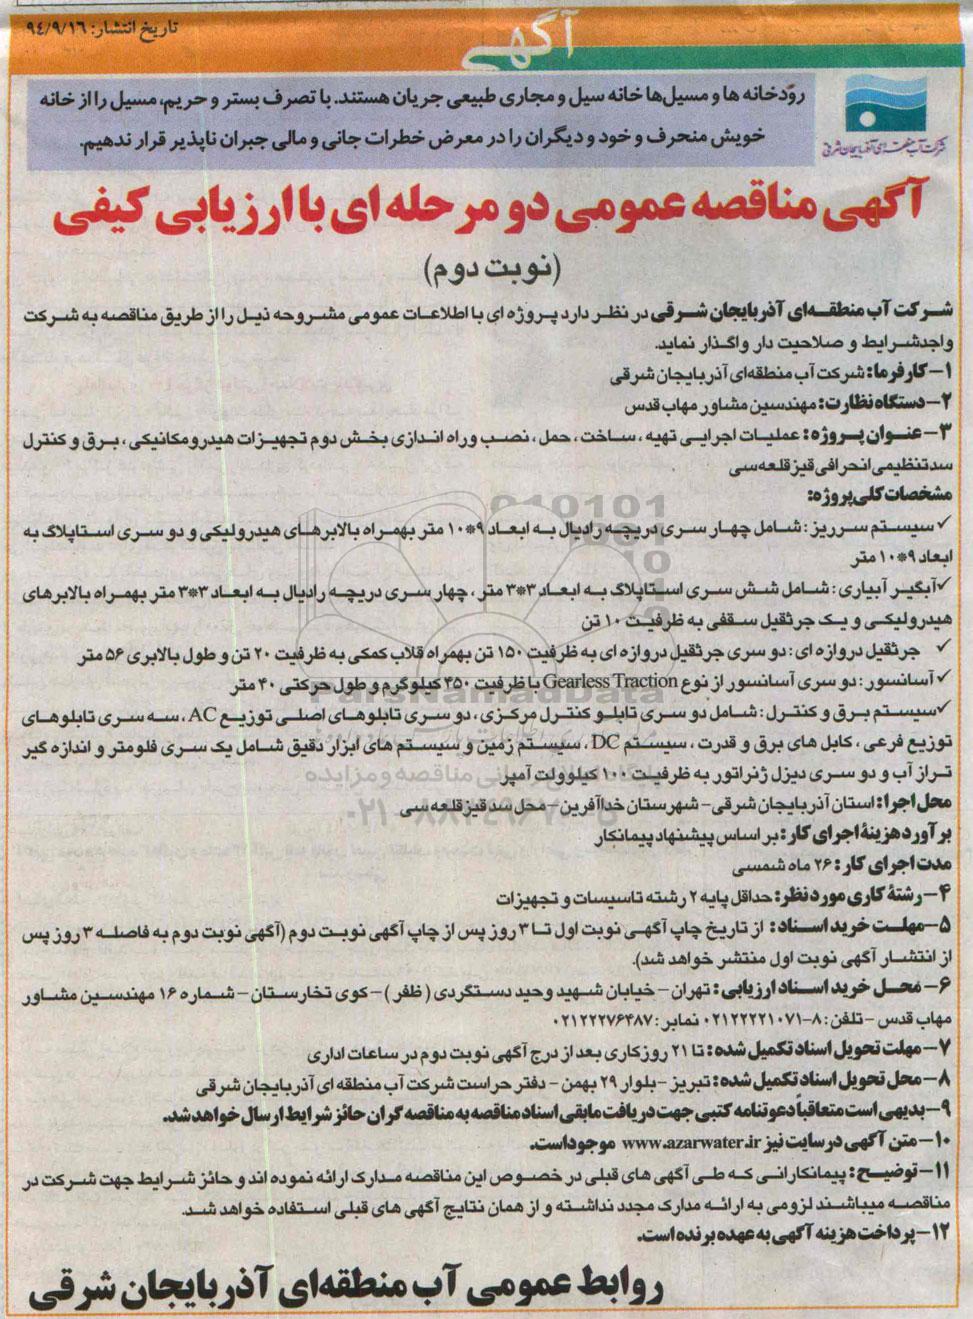 تاریخ انتشار: ۹۴/۹/۱۶
آگهی
رودخانه ها و مسیل‌ها خانه سیل و مجاری طبیعی جریان هستند. با تصرف بستر و حریم، مسیل را از خانه
خویش منحرف و خود و دیگران را در معرض خطرات جانی و مالی جبران ناپذیر قرار ندهیم.
شرکت آب منطقه‌ای آذربایجان شرقی
آگهی مناقصه عمومی دو مرحله ای با ارزیابی کیفی
(نوبت دوم)
شرکت آب منطقه‌ای آذربایجان شرقی در نظر دارد پروژه ای با اطلاعات عمومی مشروحه ذیل را از طریق مناقصه به شرکت
واجدشرایط و صلاحیت دار واگذار نماید.
۱- کارفرما: شرکت آب منطقه‌ای آذربایجان شرقی
۲- دستگاه نظارت: مهندسین مشاور مهاب قدس
۳- عنوان پروژه: عملیات اجرایی تهیه، ساخت، حمل، نصب وراه اندازی بخش دوم تجهیزات هیدرومکانیکی، برق و کنترل
سد تنظیمی انحرافی قیز قلعه سی
مشخصات کلی پروژه:
✓ سیستم سرریز: شامل چهار سری دریچه رادیال به ابعاد ۹*۱۰ متر بهمراه بالابرهای هیدرولیکی و دو سری استاپلاگ به
ابعاد ۹*۱۰ متر
✓ آبگیر آبیاری: شامل شش سری استاپلاگ به ابعاد ۳*۳ متر، چهار سری دریچه رادیال به ابعاد ۳*۳ متر بهمراه بالابرهای
هیدرولیکی و یک جرثقیل سقفی به ظرفیت ۱۰ تن
✓ جرثقیل دروازه ای: دو سری جرثقیل دروازه ای به ظرفیت ۱۵۰ تن بهمراه قلاب کمکی به ظرفیت ۲۰ تن و طول بالابری ۵۶ متر
✓ آسانسور: دو سری آسانسور از نوع Gearless Traction با ظرفیت ۴۵۰ کیلوگرم و طول حرکتی ۴۰ متر
✓ سیستم برق و کنترل: شامل دو سری تابلو کنترل مرکزی، دو سری تابلوهای اصلی توزیع AC، سه سری تابلوهای
توزیع فرعی، کابل های برق و قدرت، سیستم DC، سیستم زمین و سیستم های ابزار دقیق شامل یک سری فلومتر و اندازه گیر
تراز آب و دو سری دیزل ژنراتور به ظرفیت ۱۰۰ کیلوولت آمپر
محل اجرا: استان آذربایجان شرقی- شهرستان خداآفرین- محل سد قیز قلعه سی
برآورد هزینهٔ اجرای کار: بر اساس پیشنهاد پیمانکار
مدت اجرای کار: ۲۶ ماه شمسی
۴- رشتهٔ کاری مورد نظر: حداقل پایه ۲ رشته تاسیسات و تجهیزات
۵- مهلت خرید اسناد: از تاریخ چاپ آگهی نوبت اول تا ۳ روز پس از چاپ آگهی نوبت دوم (آگهی نوبت دوم به فاصله ۳ روز پس
از انتشار آگهی نوبت اول منتشر خواهد شد).
۶- محل خرید اسناد ارزیابی: تهران- خیابان شهید وحید دستگردی (ظفر)- کوی تخارستان- شماره ۱۶ مهندسین مشاور
مهاب قدس- تلفن: ۸-۰۲۱۲۲۲۲۱۰۷۱ نمابر: ۰۲۱۲۲۲۷۶۴۸۷
۷- مهلت تحویل اسناد تکمیل شده: تا ۲۱ روز کاری بعد از درج آگهی نوبت دوم در ساعات اداری
۸- محل تحویل اسناد تکمیل شده: تبریز- بلوار ۲۹ بهمن- دفتر حراست شرکت آب منطقه ای آذربایجان شرقی
۹- بدیهی است متعاقباً دعوتنامه کتبی جهت دریافت مابقی اسناد مناقصه به مناقصه گران حائز شرایط ارسال خواهد شد.
۱۰- متن آگهی در سایت نیز www.azarwater.ir موجود است.
۱۱- توضیح: پیمانکارانی که طی آگهی های قبلی در خصوص این مناقصه مدارک ارائه نموده اند و حائز شرایط جهت شرکت در
مناقصه میباشند لزومی به ارائه مدارک مجدد نداشته و از همان نتایج آگهی های قبلی استفاده خواهد شد.
۱۲- پرداخت هزینه آگهی به عهده برنده است.
روابط عمومی آب منطقه‌ای آذربایجان شرقی